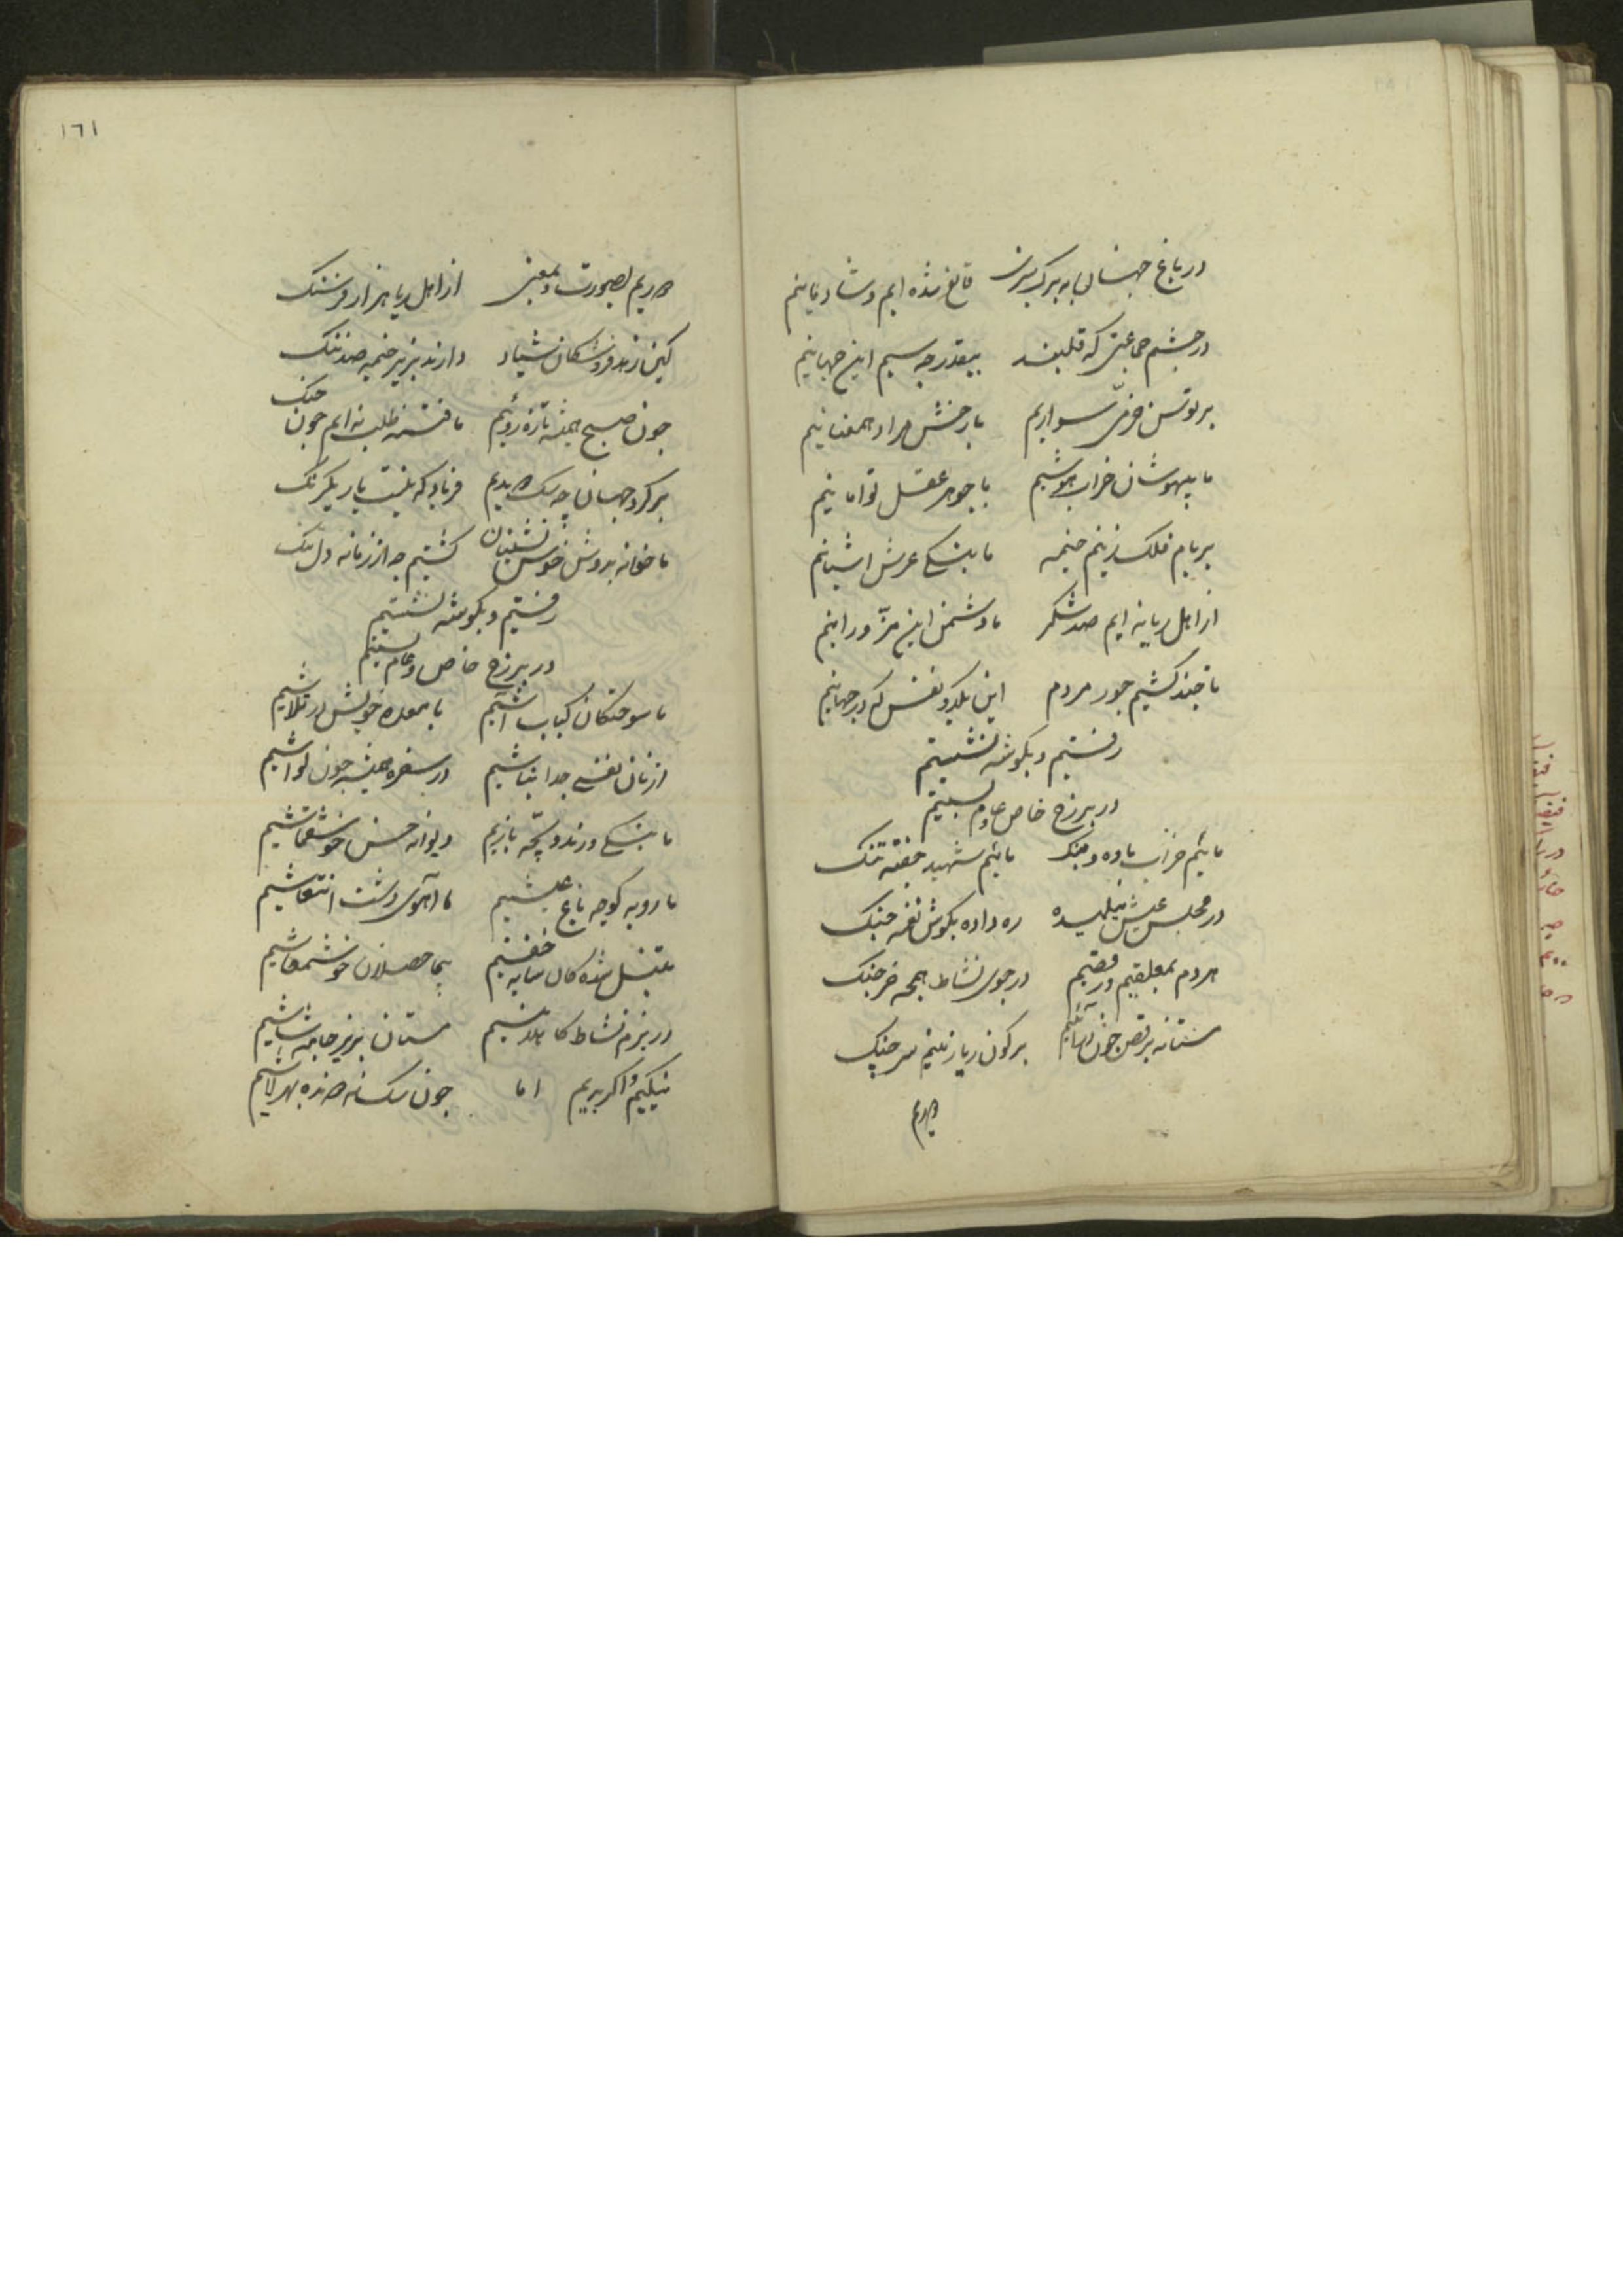 در باغ جهان به برک سبزی قانع شده ایم و شادمانیم
در چشم جماعتی که قلبند بیقدر چو سیم این جهانیم
بر توسن خرمی سواریم با رخش مراد همعنانیم
ما بیهوشان خراب هوشیم با جوهر عقل توامانیم
بر بام فلک زنیم خیمه ما بنکی عرش اشیانیم
از اهل ریا نه ایم صد شکر ما دشمن این مزورانیم
تا چند کشیم جور مردم این یکدو نفس که در جهانیم
رفتیم و بکوشه نشستیم
در بر رخ خاص و عام بستیم
مائیم خراب باده و بنک مائیم شهید جفته تنک
در مجلس عیش ره داده بکوش نغمه چنک
هر دم بمعلقیم و رقصیم در جوی نشاط همچه خرچنک
مستانه برقص چون درآئیم بر کون ریا زنیم سرچنک
دوریم
١٦١
دوریم بصورت و بمعنی از اهل ریا هزار فرسنک
کین زهد فروشکان شیاد دارند بزیر خیمه صد ننک
چون صبح همیشه تازه روئیم ما فتنه طلب نه ایم چون جنک
بر کرد جهان چه سک دویدیم فریاد که نیست یار یکرنک
ما خانه بدوش خوش نشینان کشتیم چه از زمانه دل تنک
رفتیم و بکوشه نشستیم
در بر رخ خاص و عام بستیم
ما سوختکان کباب آشیم با معده خویش در تلاشیم
از نان نفسی جدا نباشیم در سفره همیشه چون لواشیم
ما بنکی و رند و بچه بازیم دیوانه حسن خوش قماشیم
ما روبه کوچه باغ عیشیم ما آهوی دشت انتعاشیم
تنبل شده کان سایه خفتیم بیحاصلان خوش معاشیم
در بزم نشاط کاهلانیم مستان بزیر جامه شاشیم
نیکیم و اکر بدیم اما چون سک نه دونده بهر لاشیم